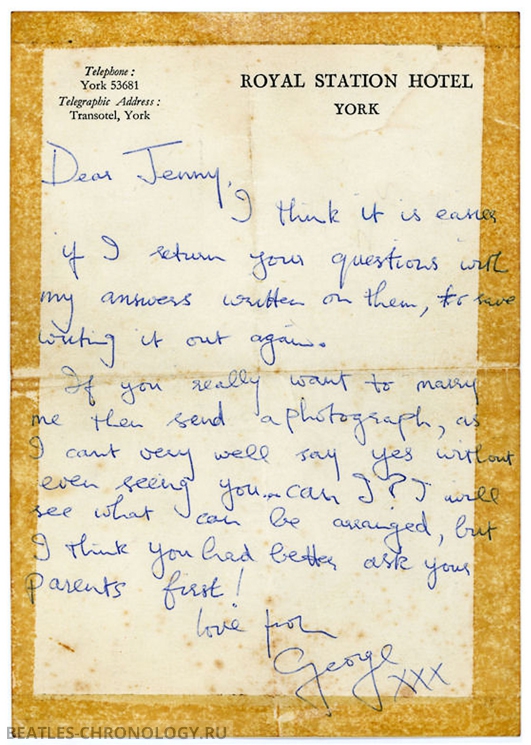 Telephone :
York 53681
Telegraphic Address :
Transotel, York
ROYAL STATION HOTEL
YORK
Dear Jenny,
I think it is easier
if I return your questions with
my answers written on them, to save
writing it out again.
If you really want to marry
me then send a photograph, as
I cant very well say yes without
even seeing you... can I? I will
see what can be arranged, but
I think you had better ask your
parents first!
love from
George XXX
BEATLES-CHRONOLOGY.RU